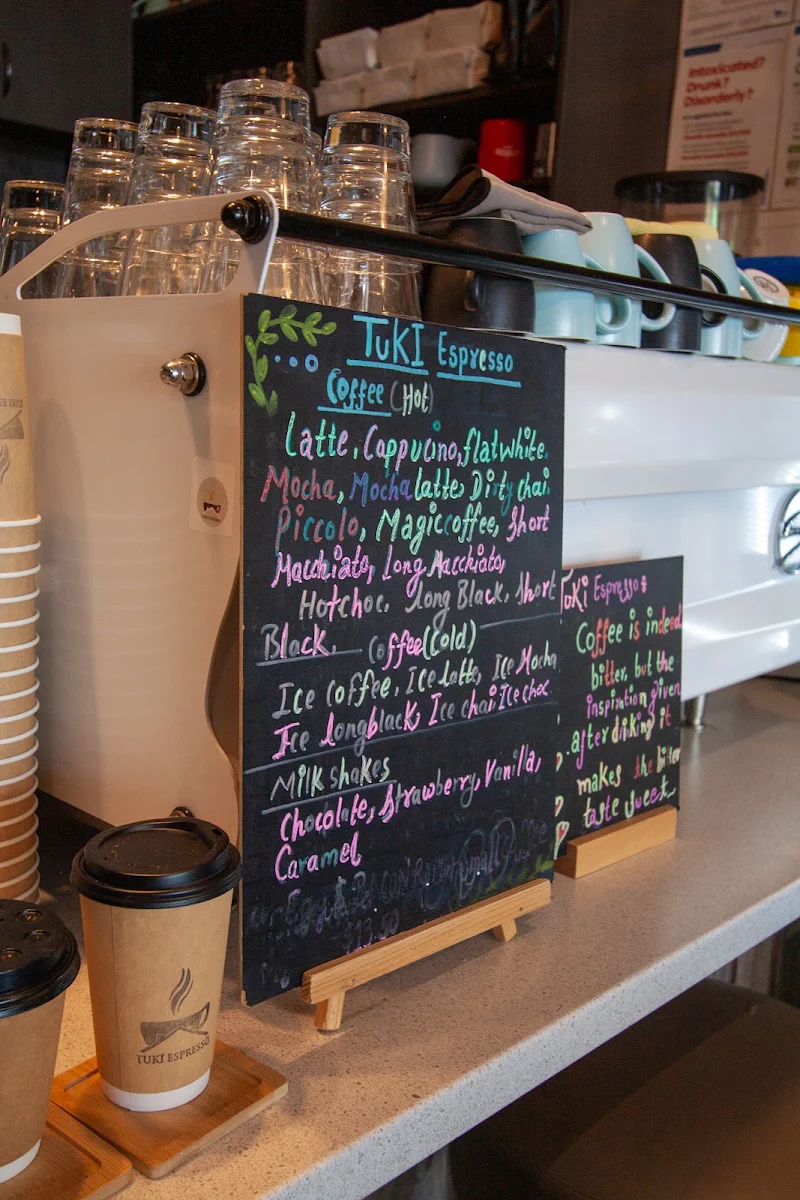 Intoxicated?
Drunk?
Disorderly?
TUKI Espresso
Coffee (Hot)
Latte, Cappucino, flat white.
Mocha, Mocha latte, Dirty chai.
Piccolo, Magic coffee, Short
Macchiato, Long Macchiato,
Hotchoc. Long Black, Short
Black. Coffee (Cold)
Ice Coffee, Ice latte, Ice Mocha
Ice longblack, Ice chai Ice choc
Milk shakes
Chocolate, Strawberry, Vanilla,
Caramel
Tuki Espresso:
Coffee is indeed
bitter, but the
inspiration given
after drinking it
makes the bitter
taste sweet.
TUKI ESPRESSO